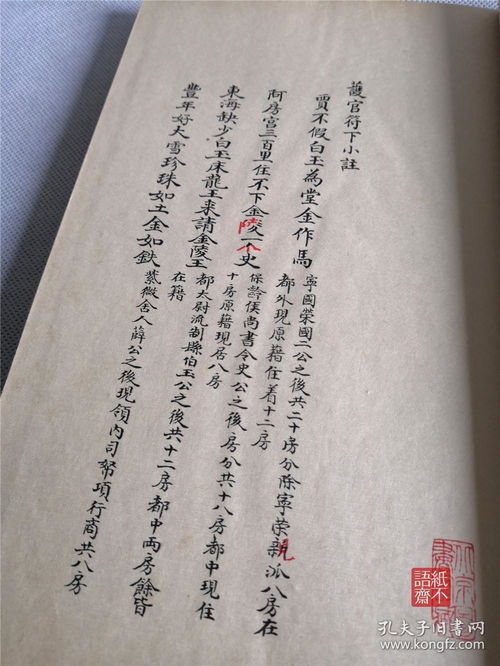 䕶官符下小註
賈不假白玉為堂金作馬
寧國榮國二公之後共二十房分除寧荣親派八房在
都外現原藉住着十二房
阿房宫三百里住不下金陵一个史
保齡侯尚書令史公之後房分共十八房都中現住
十房原籍現居八房
東海缺少白玉床龍王来請金陵王
都太尉流制縣伯玉公之後共十二房都中両房餘皆
在籍
豐年好大雪珍珠如土金如鉄
紫微舍人薛公之後現領内司帑項行商共八房
紙不語齋
孔夫子旧書网
kongfz.com